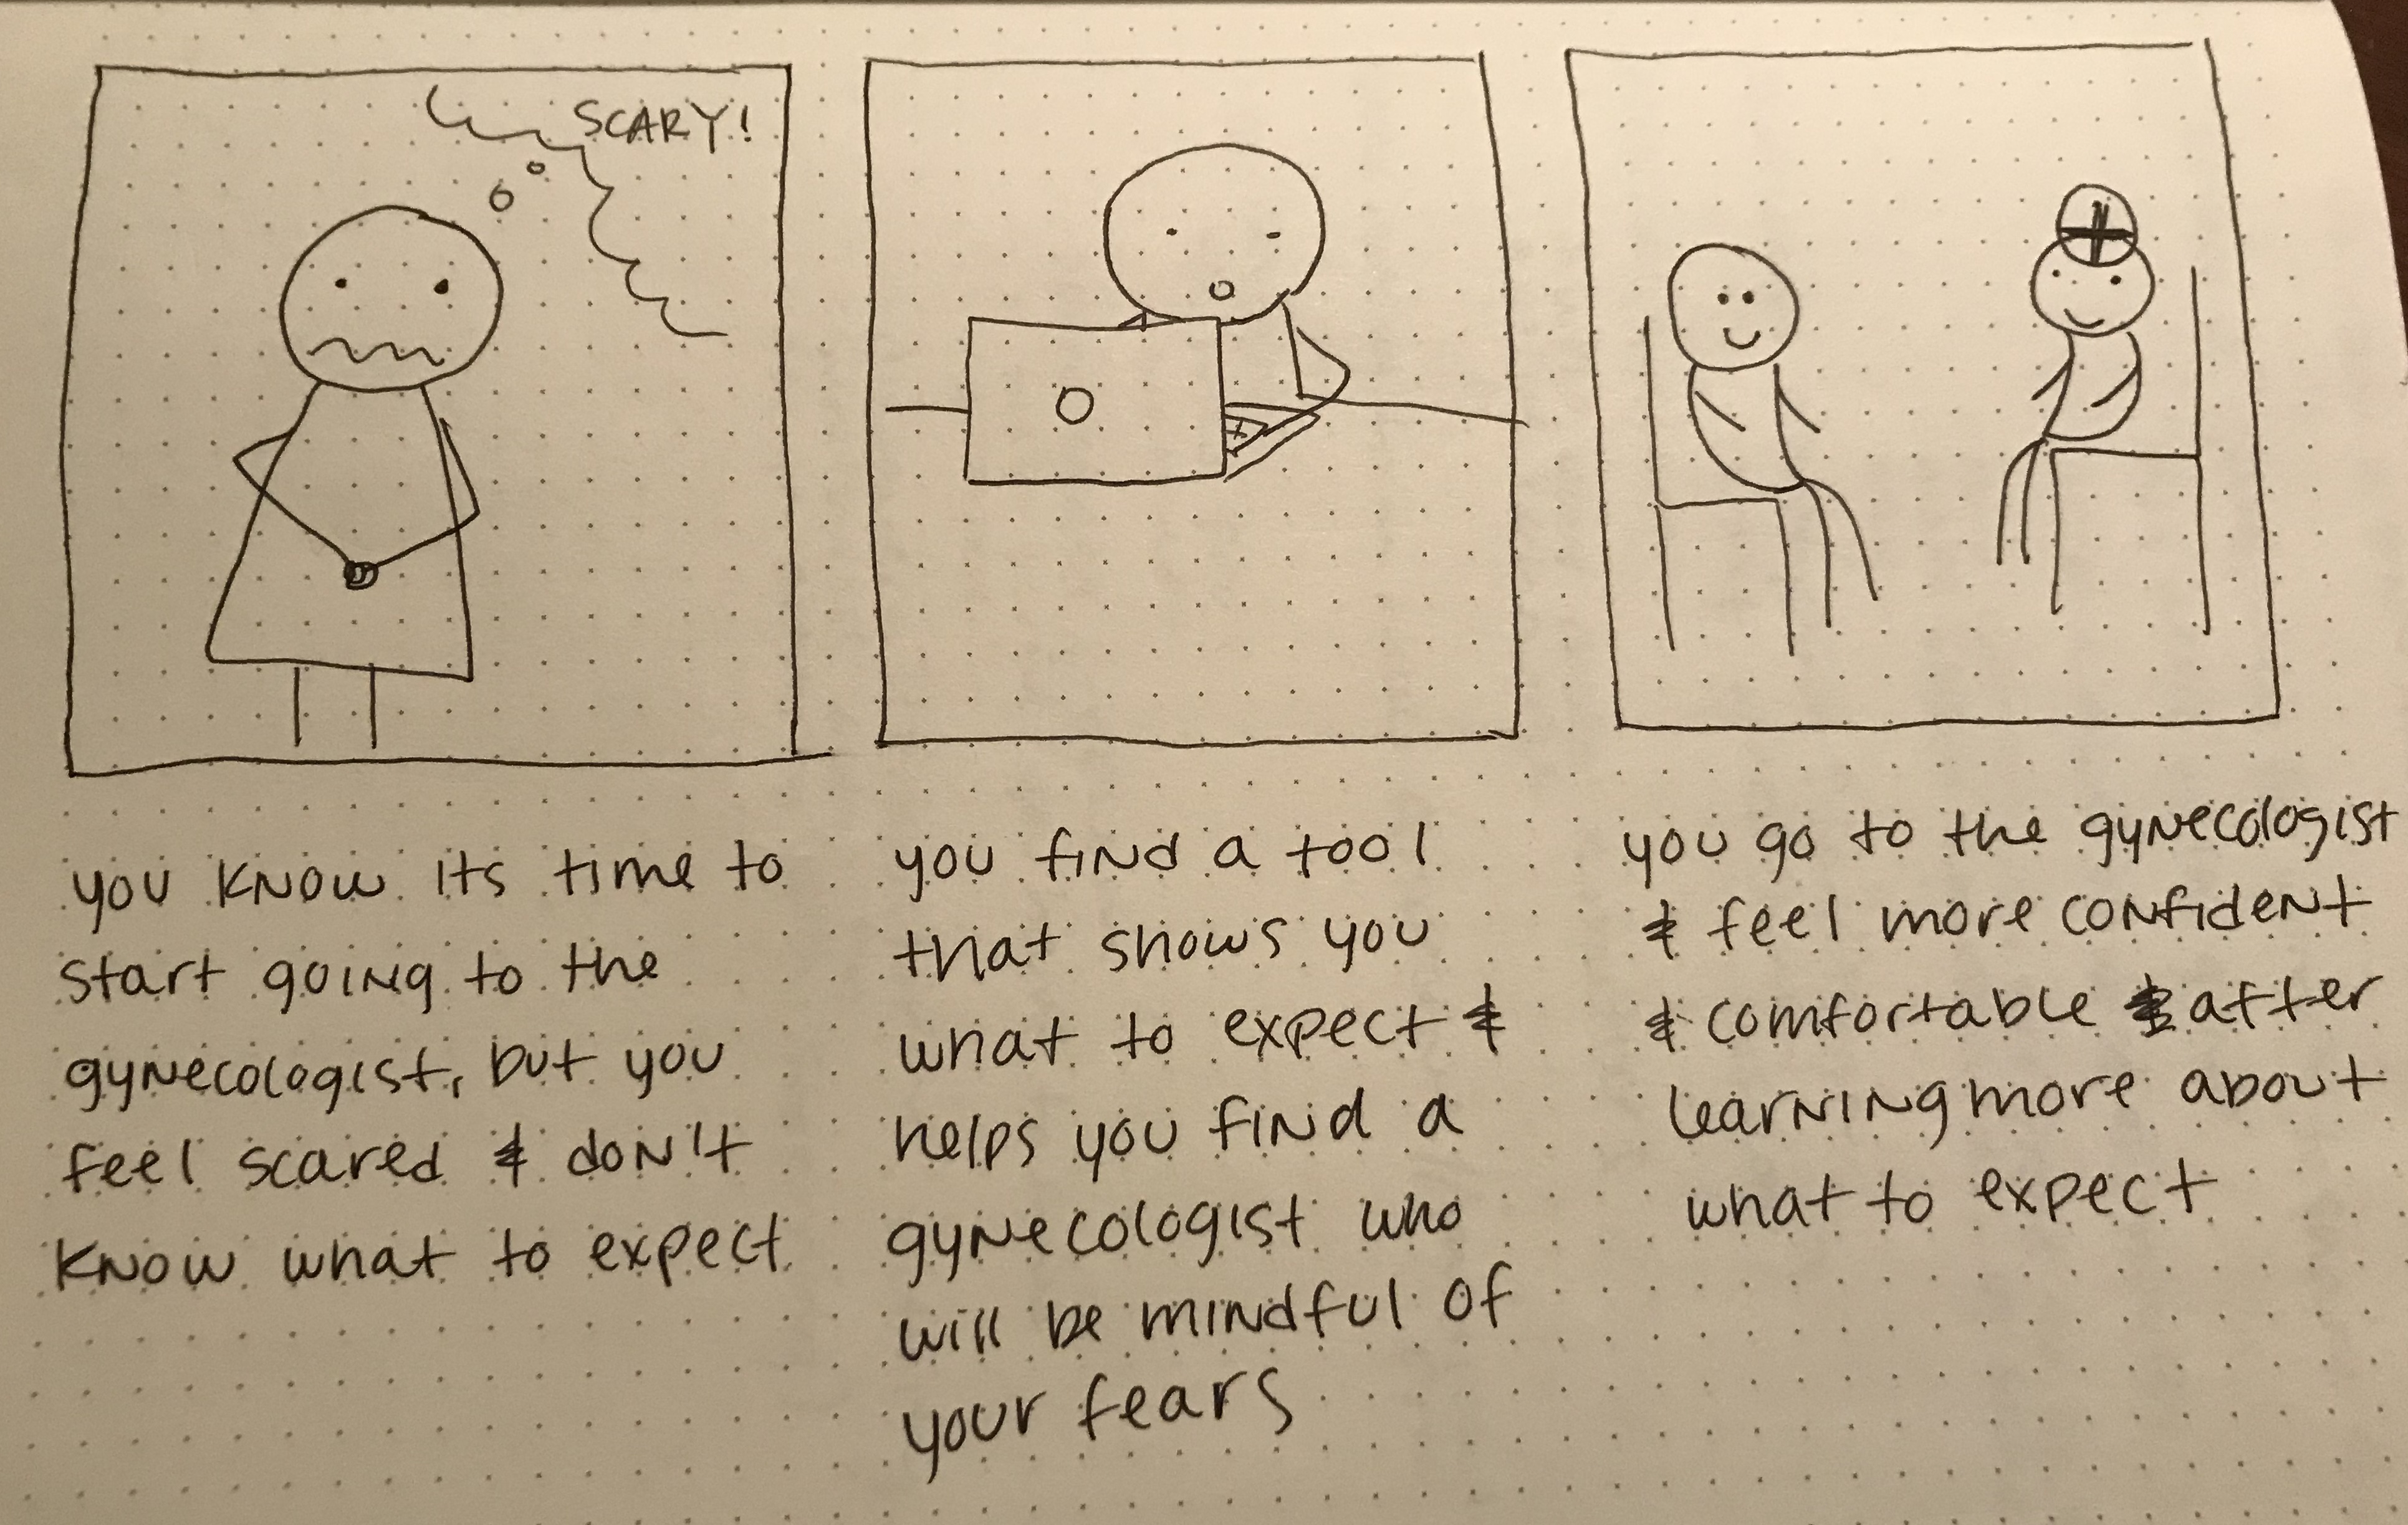 SCARY!
you know its time to
start going to the
gynecologist, but you
feel scared & don't
know what to expect
you find a tool
that shows you
what to expect &
helps you find a
gynecologist who
will be mindful of
your fears
you go to the gynecologist
& feel more confident
& comfortable after
learning more about
what to expect